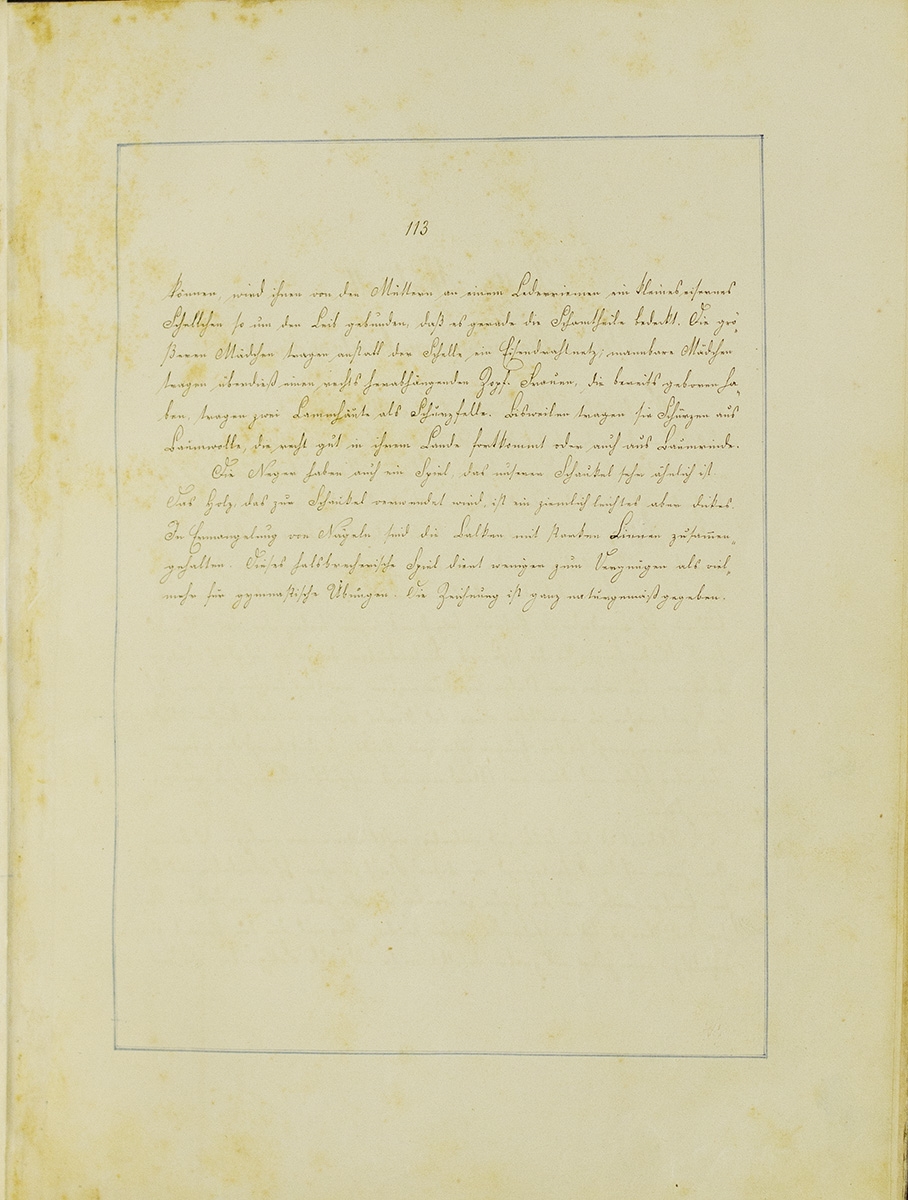 113
können, wird ihnen von den Müttern an einem Lederriemen ein kleines eisernes
Schellchen so um den Leib gebunden, daß es gerade die Schamtheile bedeckt. Die grö„
ßeren Mädchen tragen anstatt der Schelle ein Eisendrahtnetz; mannbare Mädchen
tragen überdieß einen rechts herabhängenden Zopf. Frauen, die bereits geboren ha„
ben, tragen zwei Lammhäute als Schurzfelle. Bisweilen tragen sie Schürzen aus
Baumwolle, die recht gut in ihrem Lande fortkommt oder auch aus Baumrinde.
Die Neger haben auch ein Spiel, das unserer Schaukel sehr ähnlich ist.
Das Holz, das zur Schaukel verwendet wird, ist ein ziemlich leichtes aber dickes.
In Ermangelung von Nägeln sind die Balken mit starken Lianen zusam̄en„
gehalten. Dieses halsbrecherische Spiel dient weniger zum Vergnügen als viel„
mehr für gymnastische Übungen. Die Zeichnung ist ganz naturgemäß gegeben.